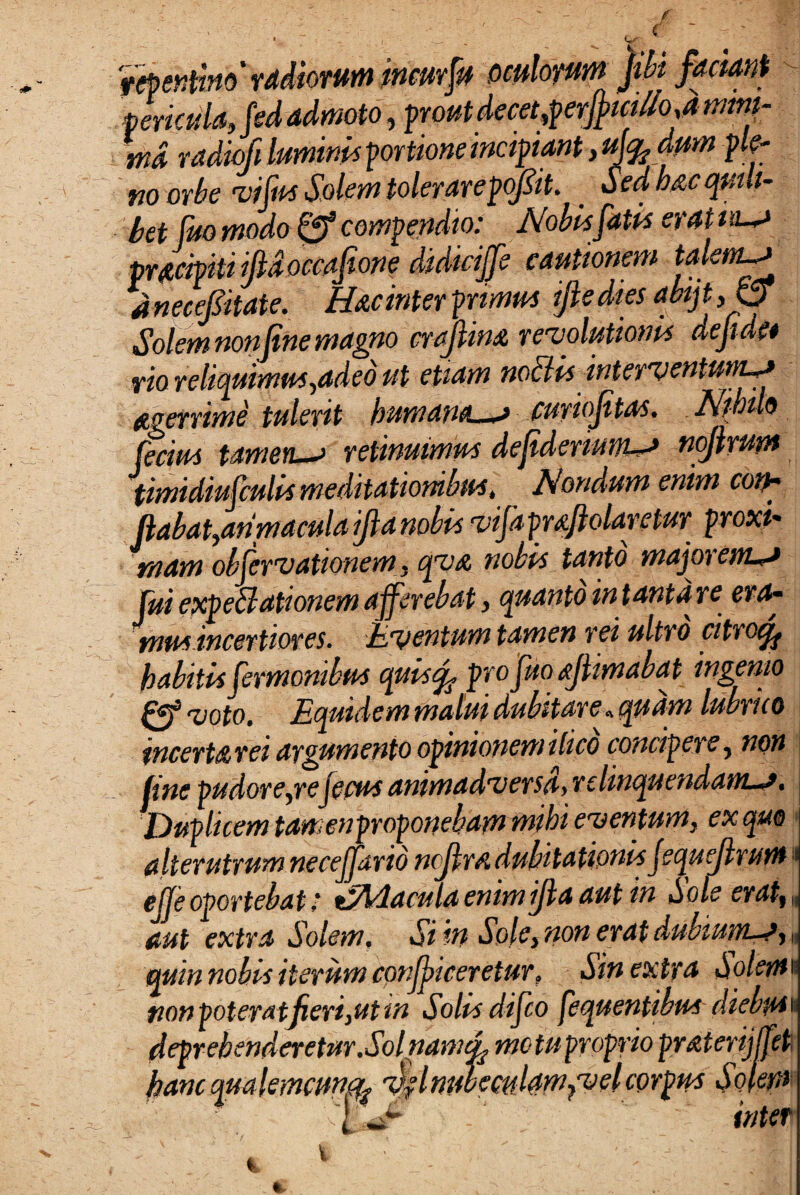 repentino radiorum incursu oculorum sibi faciant
pericula, sed admoto, prout decet, perspicillo, à mini-
mâ radiosi luminis portione incipiant, usq; dum ple-
no orbe visus Solem tolerare poßit. Sed hæc quili-
bet suo modo & compendio: Nobis satis erat in
præcipiti istâ occasione didicisse cautionem talem
à neceßitate. Hæc inter primus iste dies abijt, &
Solem non sine magno crastinæ revolutionis deside
rio reliquimus, adeò ut etiam noctis interventum
ægerrimè tulerit humana curiositas. Nihilo
secius tamen retinuimus desiderium nostrum
timidiusculis meditationibus. Nondum enim con-
stabat, an macula ista nobis visa præstolaretur proxi-
mam observationem, qvæ nobis tantò majorem
sui expectationem afferebat, quantò in tantâ re era-
mus incertiores. Eventum tamen rei ultrò citroq;
habitis sermonibus quisq; pro suo æstimabat ingenio
& voto. Equidem malui dubitare, quàm lubrico
incertæ rei argumento opinionem ilicò concipere, non
sine pudore, re secus animadversâ, relinquendam.
Duplicem tamen proponebam mihi eventum, ex quo
alterutrum necessariò nostræ dubitationis sequestrum
esse oportebat: Macula enim ista aut in Sole erat,
aut extra Solem. Si in Sole, non erat dubium,
quin nobis iterùm conspiceretur, Sin extra Solem
non poterat fieri, ut in Solis disco sequentibus diebus
deprehenderetur. Sol namq; motu proprio præterijsset
hanc qualemcunq; vel nubeculam, vel corpus Solem
inter